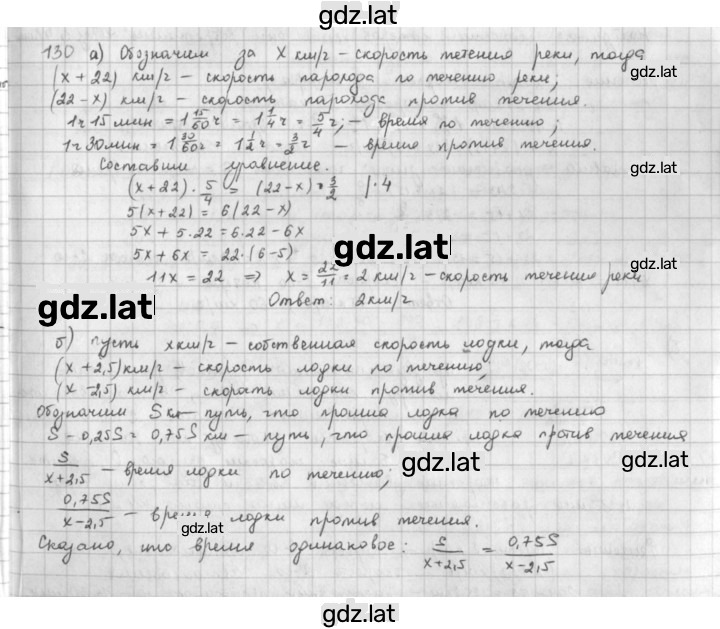 gdz.lat
130 а) Обозначим за x км/г – скорость течения реки, тогда
gdz.lat
(x + 22) км/г – скорость парохода по течению реки;
gdz.lat
(22 – x) км/г – скорость парохода против течения.
1г 15 мин = 1 15/60 г = 1 1/4 г = 5/4 г; – время по течению;
1г 30 мин = 1 30/60 г = 1 1/2 г = 3/2 г – время против течения.
Составим уравнение.
gdz.lat
(x + 22) · 5/4 = (22 – x) · 3/2 | · 4
5(x + 22) = 6(22 – x)
5x + 5·22 = 6·22 – 6x
gdz.lat
5x + 6x = 22·(6–5)
gdz.lat
11x = 22 ⇒ x = 22/11 = 2 км/г – скорость течения реки
gdz.lat
Ответ: 2 км/г
б) пусть x км/г – собственная скорость лодки, тогда
(x + 2,5) км/г – скорость лодки по течению,
(x – 2,5) км/г – скорать лодки против течения.
Обозначим S км – путь, что прошла лодка по течению
S – 0,25S = 0,75S км – путь, что прошла лодка против течения
gdz.lat
gdz.lat
S/(x+2,5) – время лодки по течению;
0,75S/(x–2,5) – время лодки против течения.
gdz.lat
Сказано, что время одинаковое: S/(x+2,5) = 0,75S/(x–2,5)
gdz.lat